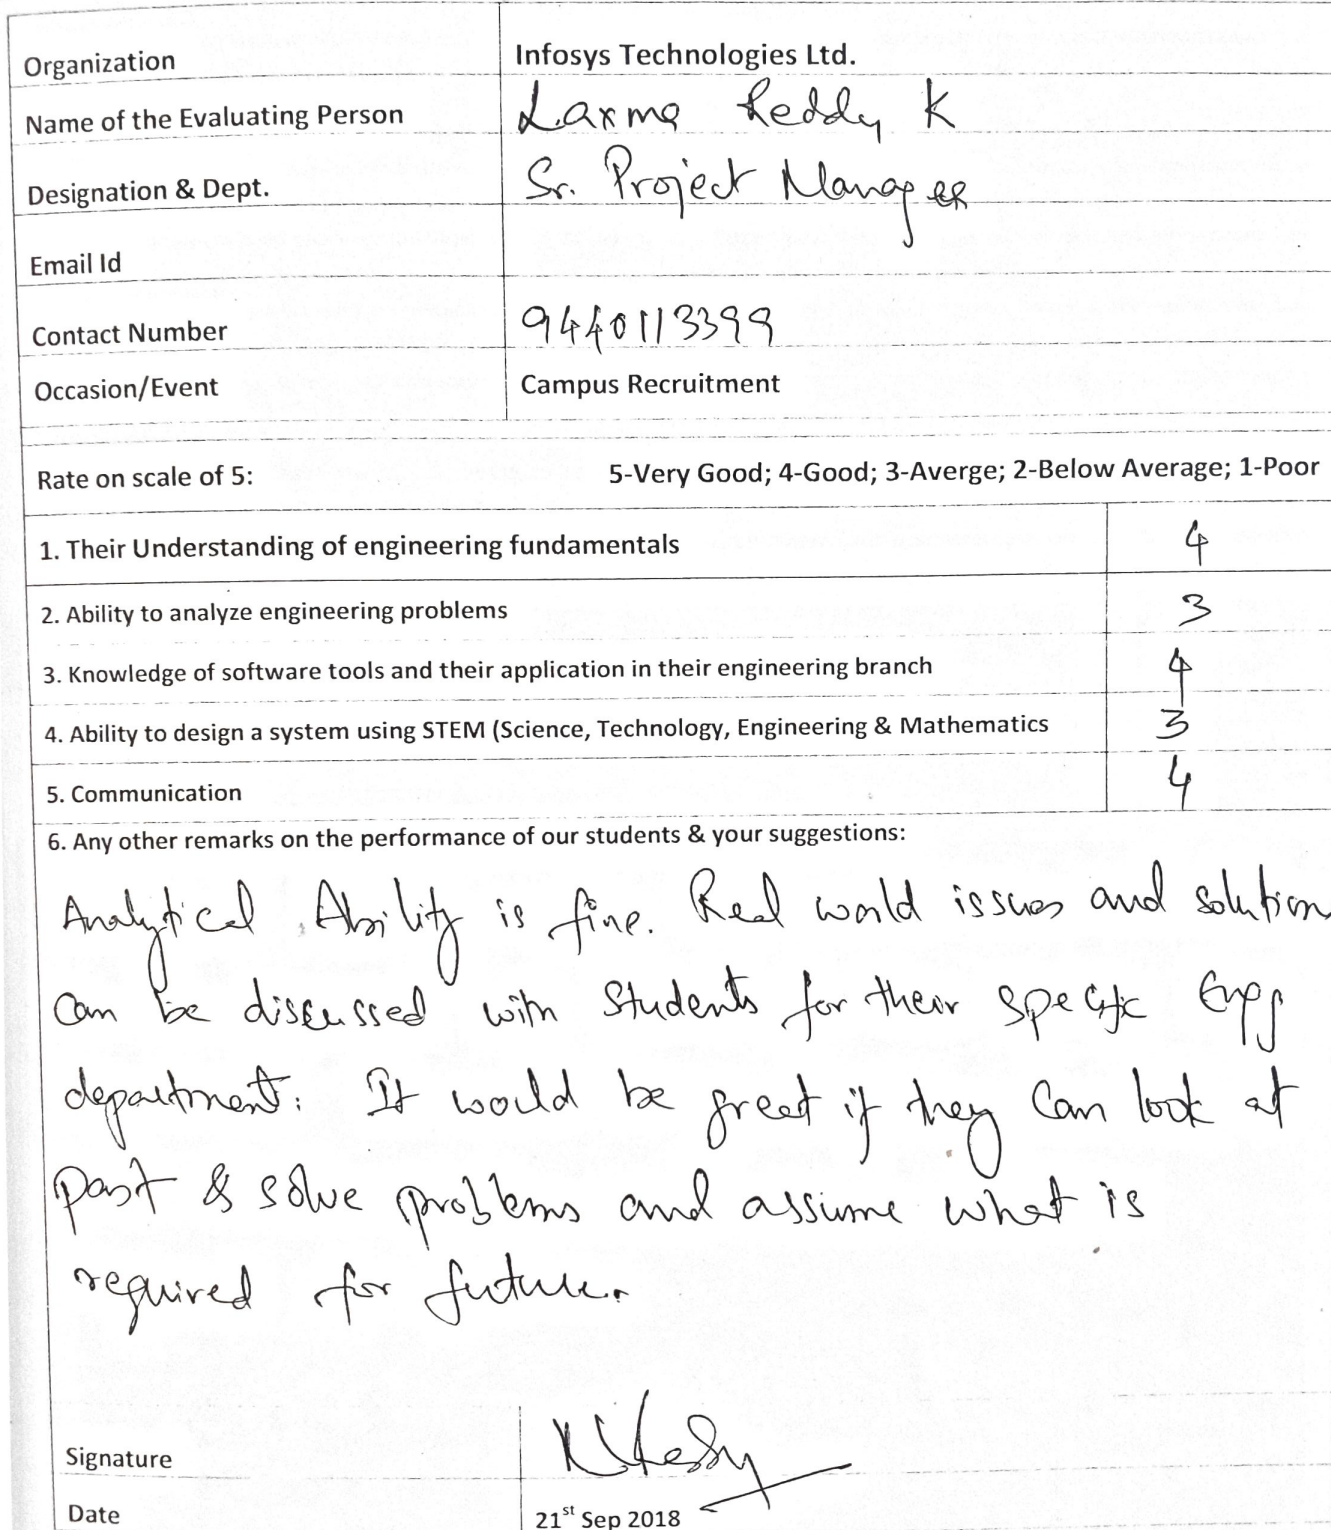 Organization Infosys Technologies Ltd.
Name of the Evaluating Person Laxma Reddy K
Designation & Dept. Sr. Project Manager
Email Id
Contact Number 9440113399
Occasion/Event Campus Recruitment
Rate on scale of 5: 5-Very Good; 4-Good; 3-Averge; 2-Below Average; 1-Poor
1. Their Understanding of engineering fundamentals 4
2. Ability to analyze engineering problems 3
3. Knowledge of software tools and their application in their engineering branch 4
4. Ability to design a system using STEM (Science, Technology, Engineering & Mathematics 3
5. Communication 4
6. Any other remarks on the performance of our students & your suggestions:
Analytical Ability is fine. Real world issues and solution
can be discussed with students for their specific Engg
department. It would be great if they can look at
past & solve problems and assume what is
required for future.
Signature
Date 21st Sep 2018